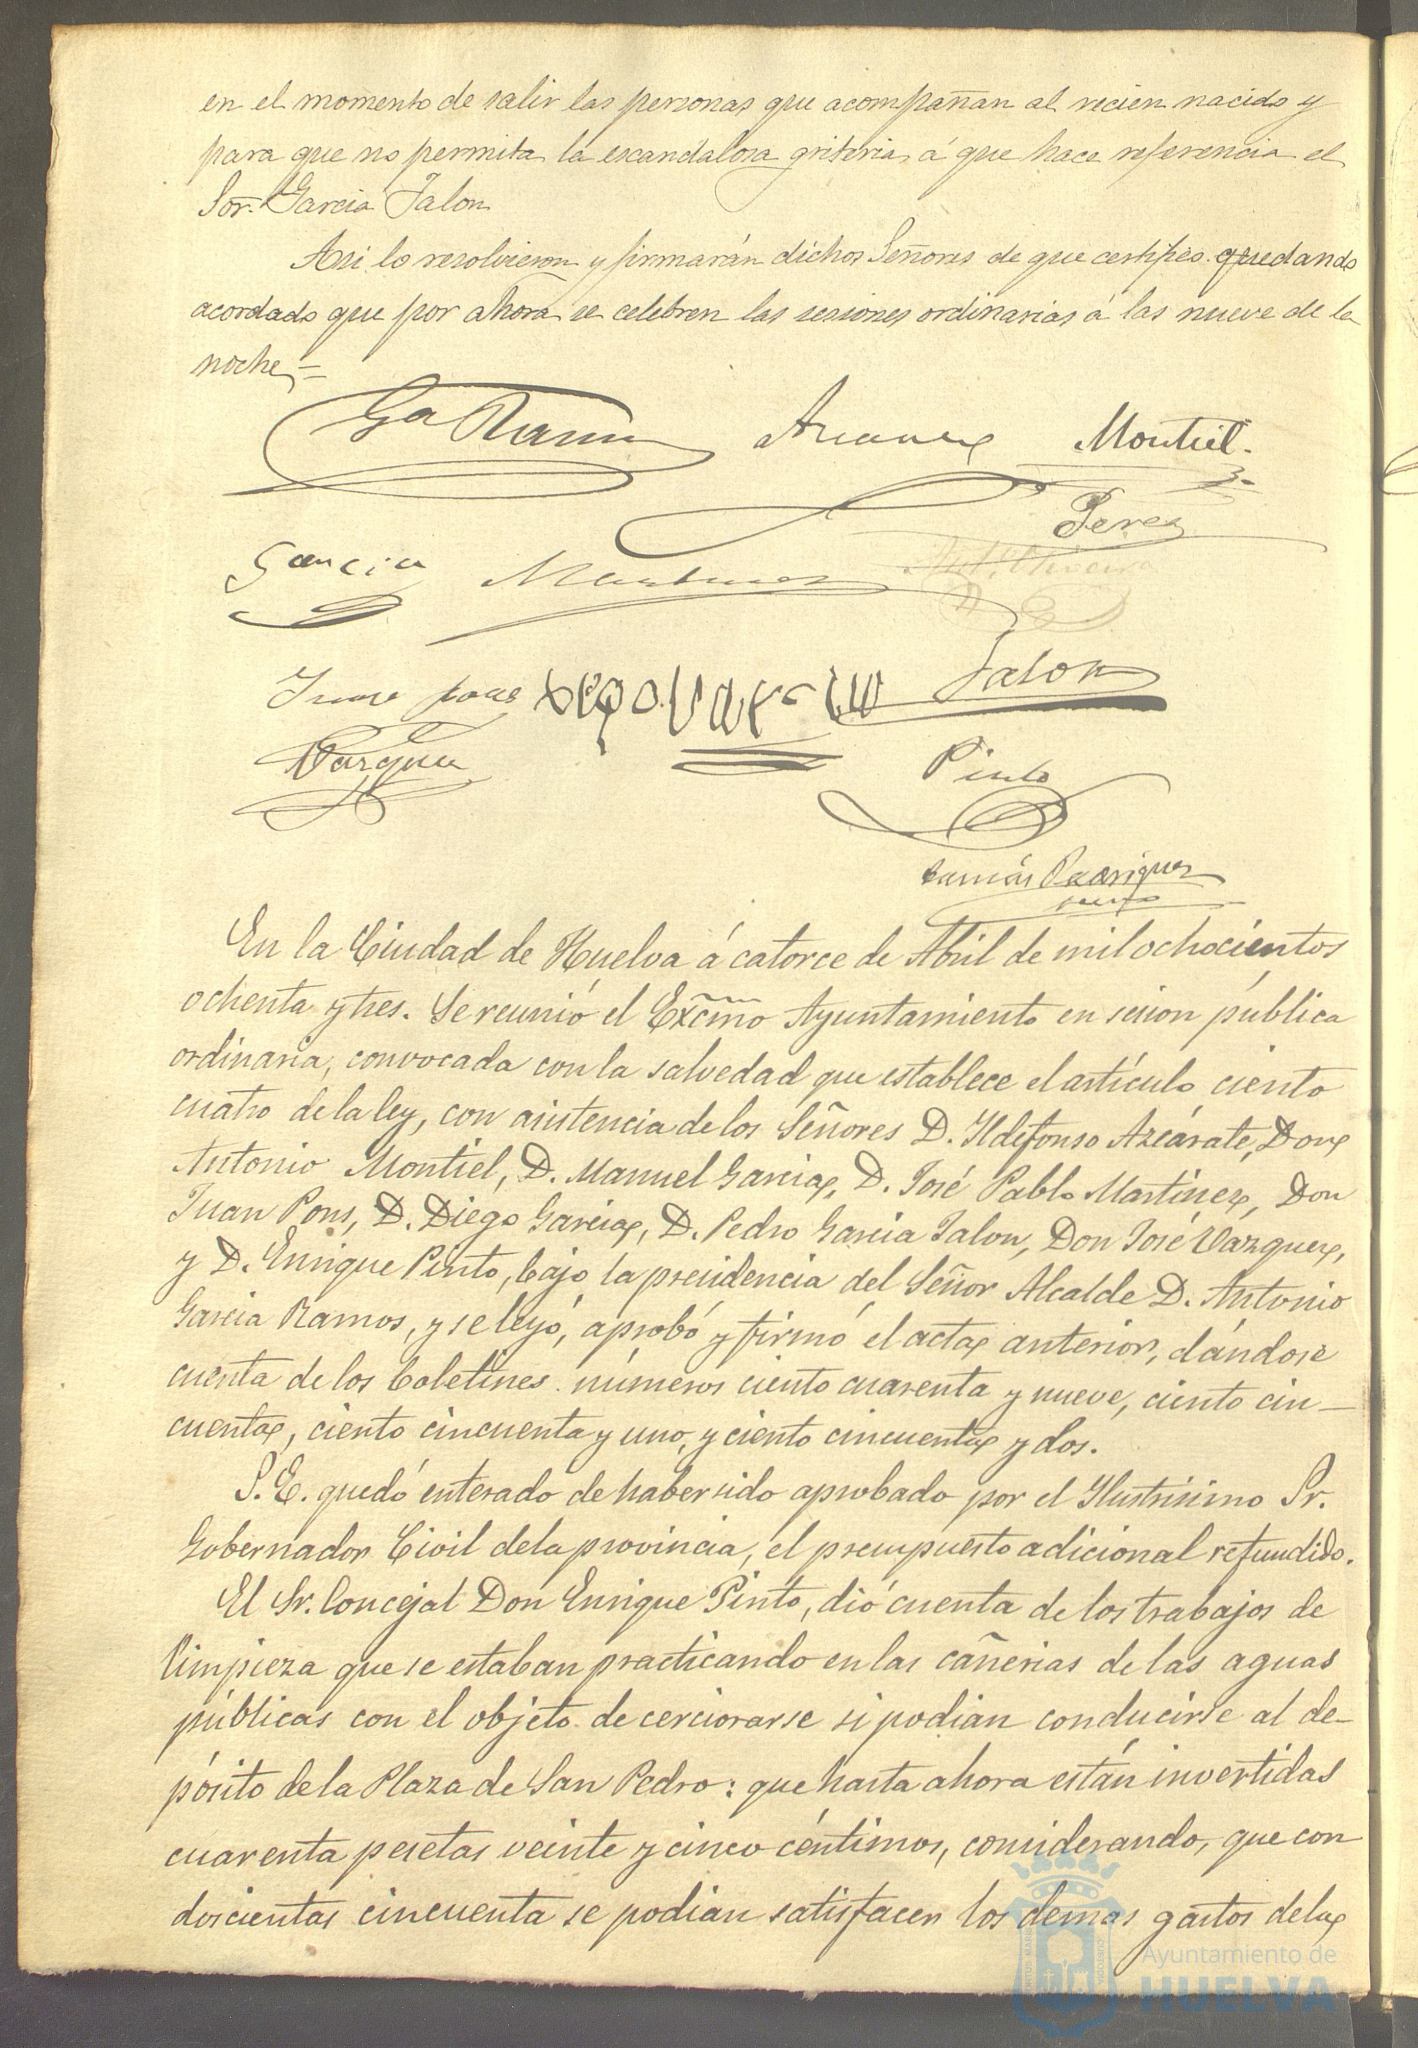 en el momento de salir las personas que acompañan al recien nacido y
para que no permita la escandalosa griteria á que hace referencia el
Sor. Garcia Jalon
Asi lo resolvieron y firmarán dichos Señores de que certifico. quedando
acordado que por ahora se celebren las sesiones ordinarias á las nueve de la
noche,=
Ga Ramos
Montiel.
Perez
Garcia Martinez
Jalon
Vazquez
Pinto
Rodriguez
En la Ciudad de Huelva á catorce de Abril de mil ochocientos
ochenta y tres. Se reunió el Excmo Ayuntamiento en sesion pública
ordinaria, convocada con la salvedad que establece el artículo ciento
cuatro de la ley, con asistencia de los Señores D. Ildefonso Azcárate, Don
Antonio Montiel, D. Manuel Garcia, D. José Pablo Martinez, Don
Juan Pons, D. Diego Garcia, D. Pedro Garcia Jalon, Don José Vázquez,
y D. Enrique Pinto, bajo la presidencia del Señor Alcalde D. Antonio
Garcia Ramos, y se leyó, aprobó y firmó el acta anterior, dándose
cuenta de los boletines números ciento cuarenta y nueve, ciento cin-
cuenta, ciento cincuenta y uno, y ciento cincuenta y dos.
S. E. quedó enterado de haber sido aprobado por el Ilustrisimo Sr.
Gobernador Civil de la provincia, el presupuesto adicional refundido.
El Sr. Concejal Don Enrique Pinto, dió cuenta de los trabajos de
limpieza que se estaban practicando en las cañerias de las aguas
públicas con el objeto de cerciorarse si podian conducirse al de-
pósito de la Plaza de San Pedro: que hasta ahora están invertidas
cuarenta pesetas veinte y cinco céntimos, considerando, que con
doscientas cincuenta se podian satisfacer los demas gastos de la
Ayuntamiento de
HUELVA